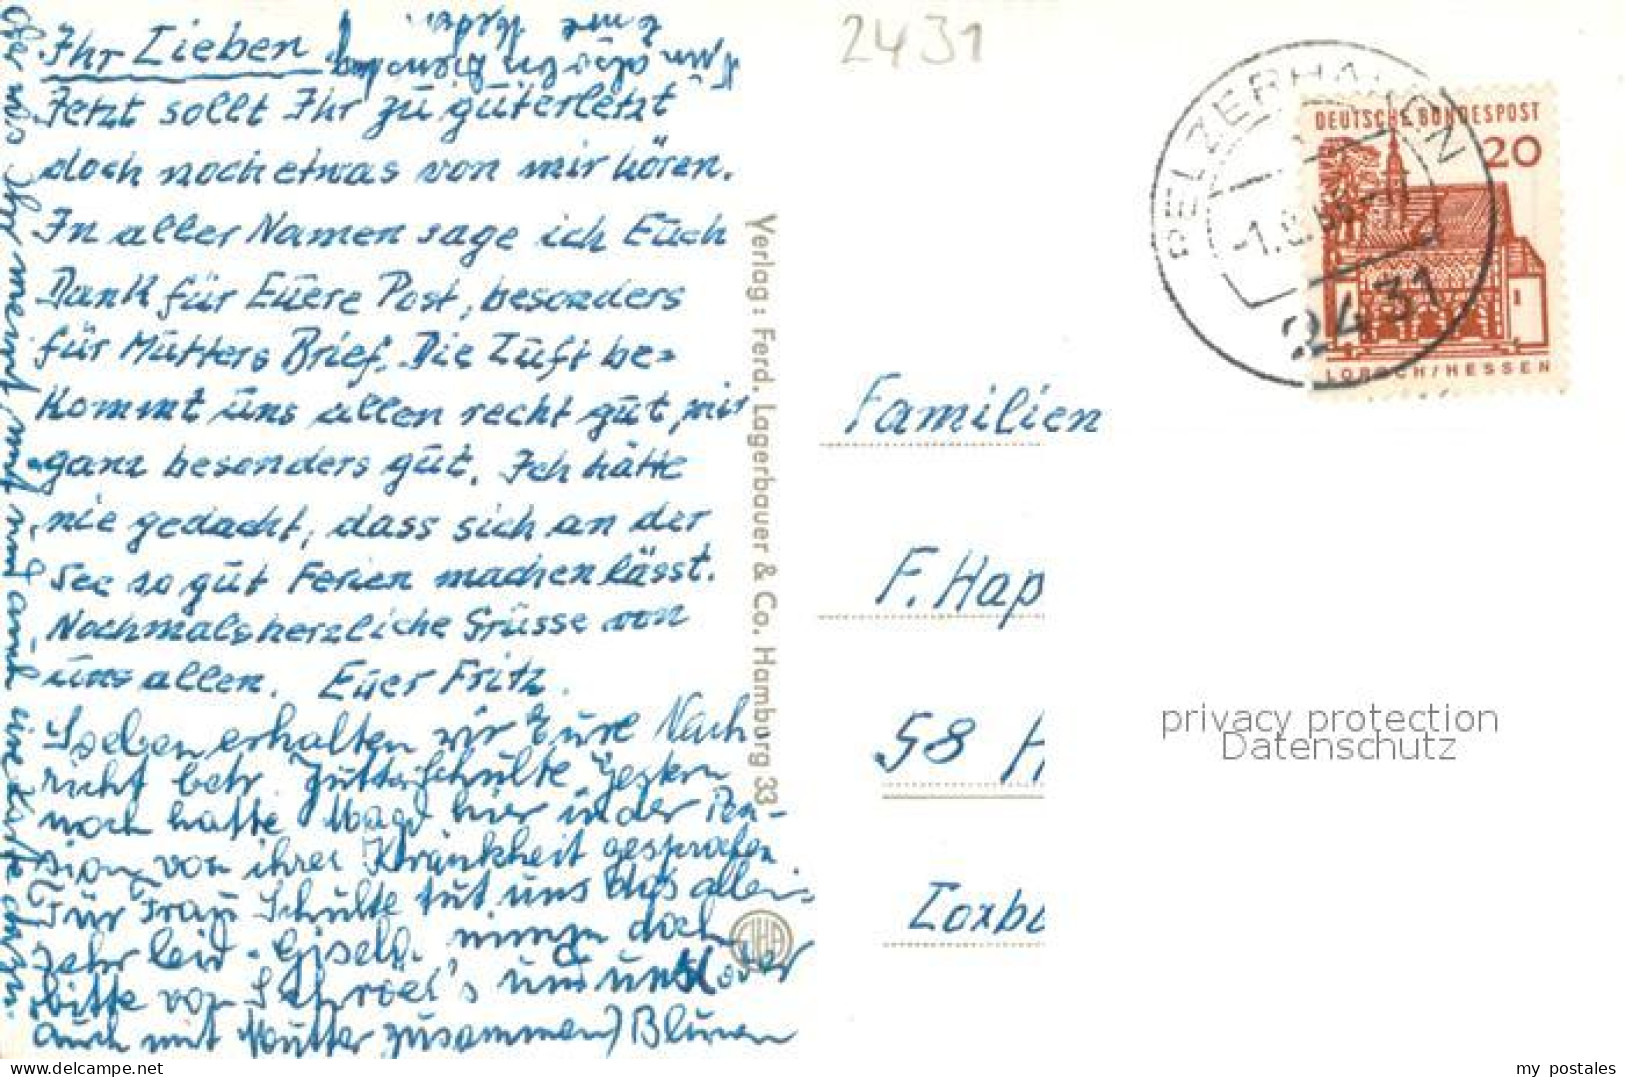 Ihr Lieben
Jetzt sollt Ihr zu guterletzt
doch noch etwas von mir hören.
In aller Namen sage ich Euch
Dank für Euere Post, besonders
für Mutters Brief. Die Luft be=
kommt uns allen recht gut, mir
ganz besonders gut. Ich hätte
nie gedacht, dass sich an der
See so gut Ferien machen lässt.
Nochmals herzliche Grüsse von
uns allen. Euer Fritz.
Soeben erhalten wir Eure Nach
richt betr. Jutta Schulte. Gestern
noch hatte hier in der Pen-
sion von ihrer Krankheit gesprochen
Für Frau Schulte tut uns das allen
sehr leid. Gisela, nimm doch
bitte von und uns (oder
auch mit Mutter zusammen) Blumen
Verlag: Ferd. Lagerbauer & Co. Hamburg 33
2431
PELZERHAKEN
2431
DEUTSCHE BUNDESPOST
20
LORSCH/HESSEN
Familien
F. Hap
58 H
Loxb
privacy protection
Datenschutz
my postales